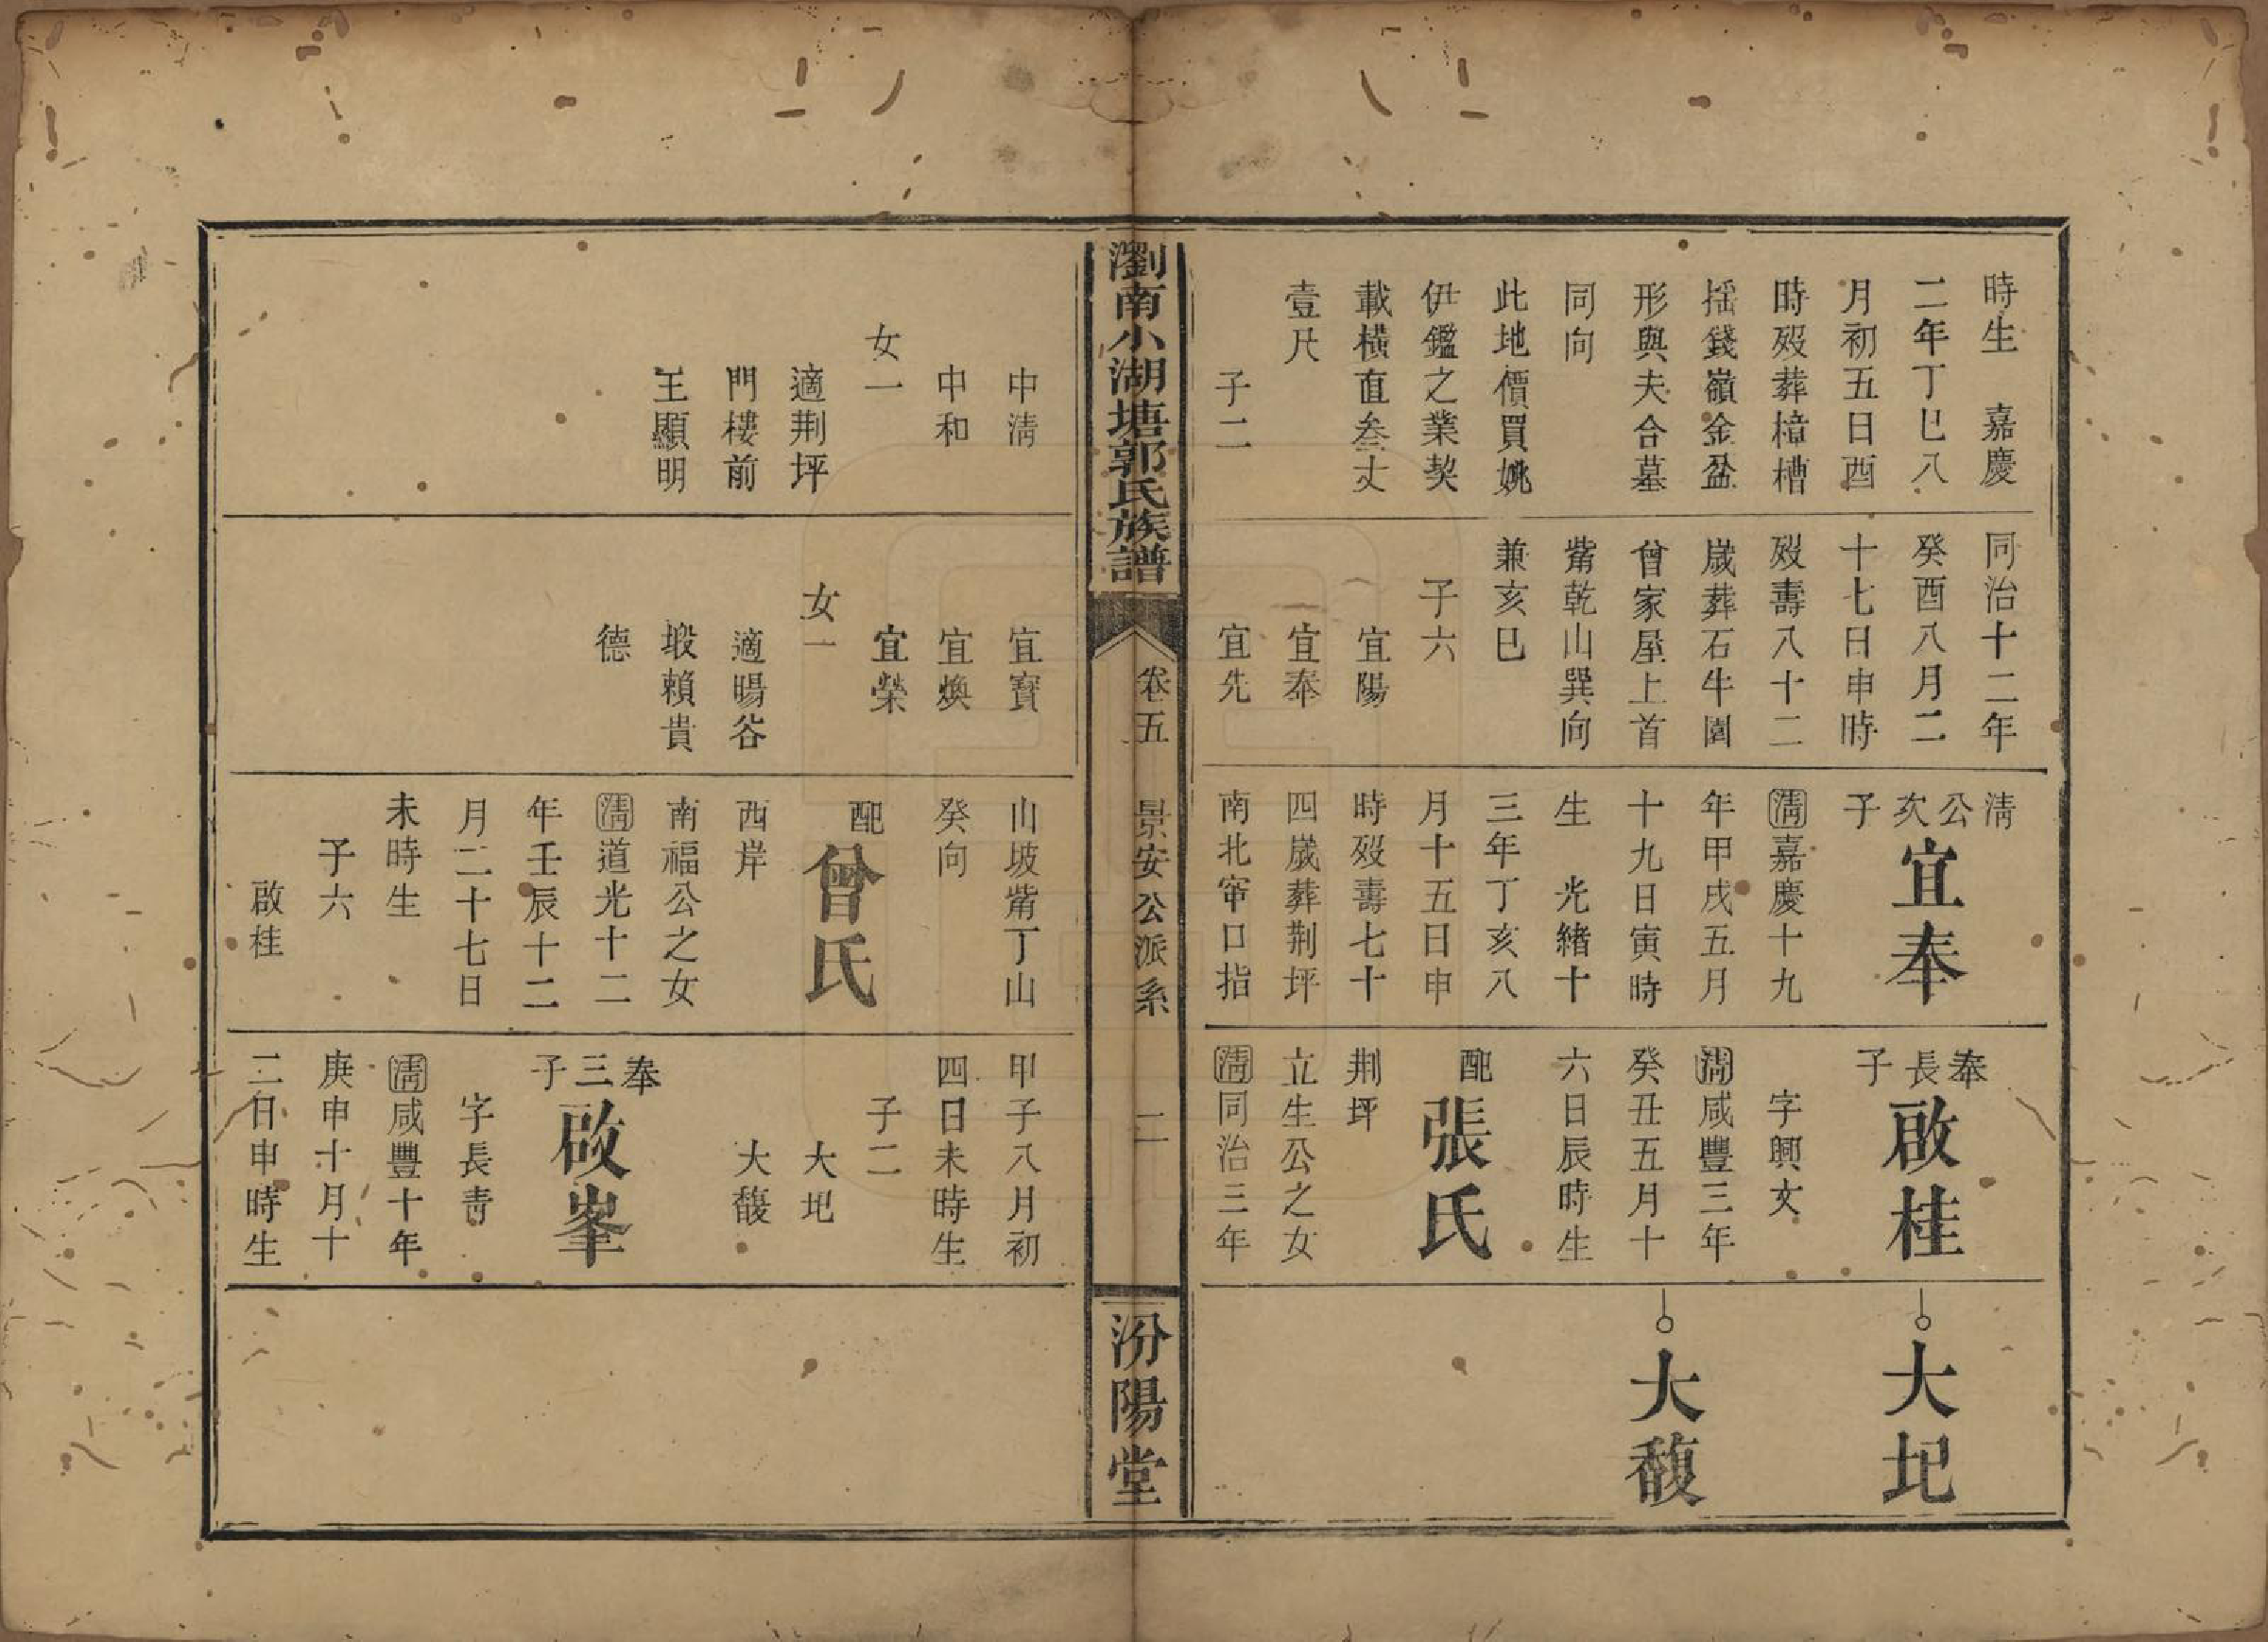 時生　嘉慶
二年丁巳八
月初五日酉
時歿葬樟槽
搖錢嶺金盆
形與夫合墓
同向
此地價買姚
伊鑑之業契
載橫直叁丈
壹尺
子二
同治十二年
癸酉八月二
十七日申時
歿壽八十二
歲葬石牛園
曾家屋上首
觜乾山巽向
兼亥巳
子六
宜陽
宜奉
宜先
清公次子
宜奉
清嘉慶十九
年甲戌五月
十九日寅時
生　光緒十
三年丁亥八
月十五日申
時歿壽七十
四歲葬荆坪
南北窜口指
奉長子
啟桂
字興文
清咸豐三年
癸丑五月十
六日辰時生
配
張氏
荆坪
立生公之女
清同治三年
大圯
大馥
瀏南小湖塘郭氏族譜
卷五　景安公派系　二
汾陽堂
中清
中和
女一
適荆坪
門樓前
王顯明
宜寶
宜煥
宜榮
女一
適暘谷
塅賴貴
德
山坡觜丁山
癸向
配
曾氏
西岸
南福公之女
清道光十二
年壬辰十二
月二十七日
未時生
子六
啟桂
甲子八月初
四日未時生
子二
大圯
大馥
奉三子
啟峯
字長青
清咸豐十年
庚申十月十
二日申時生